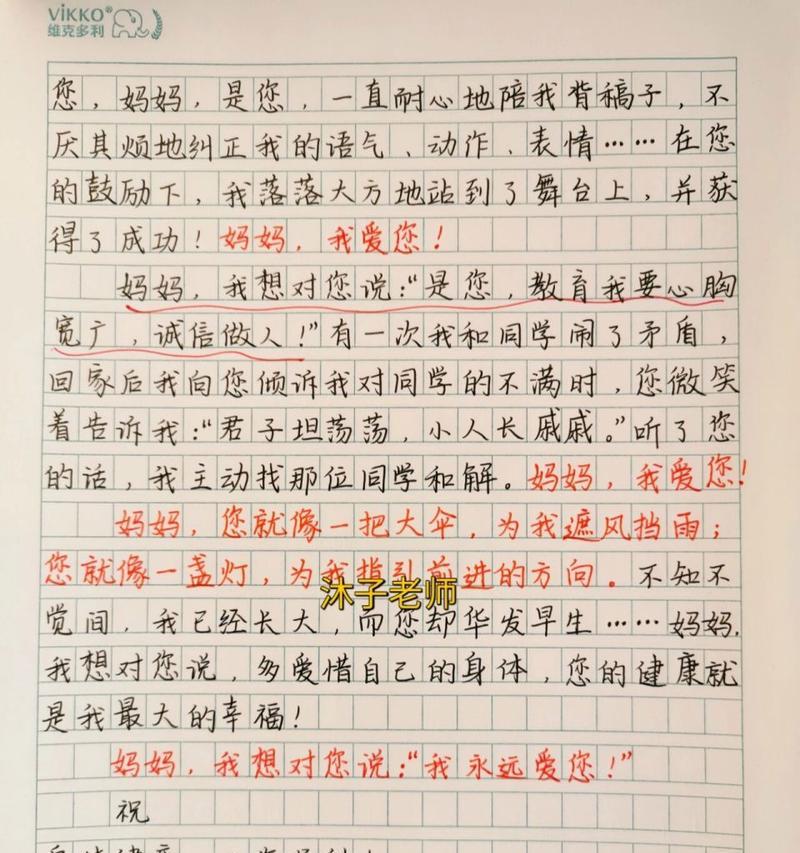 VIKKO®
维克多利
您，妈妈，是您，一直耐心地陪我背稿子，不
厌其烦地纠正我的语气、动作、表情……在您
的鼓励下，我落落大方地站到了舞台上，并获
得了成功！妈妈，我爱您！
妈妈，我想对您说：“是您，教育我要心胸
宽广，诚信做人！”有一次我和同学闹了矛盾，
回家后我向您倾诉我对同学的不满时，您微笑
着告诉我：“君子坦荡荡，小人长戚戚。”听了您
的话，我主动找那位同学和解。妈妈，我爱您！
妈妈，您就像一把大伞，为我遮风挡雨；
您就像一盏灯，为我指引前进的方向。不知不
沐子老师
觉间，我已经长大，而您却华发早生……妈妈，
我想对您说，多爱惜自己的身体，您的健康就
是我最大的幸福！
妈妈，我想对您说：“我永远爱您！”
祝